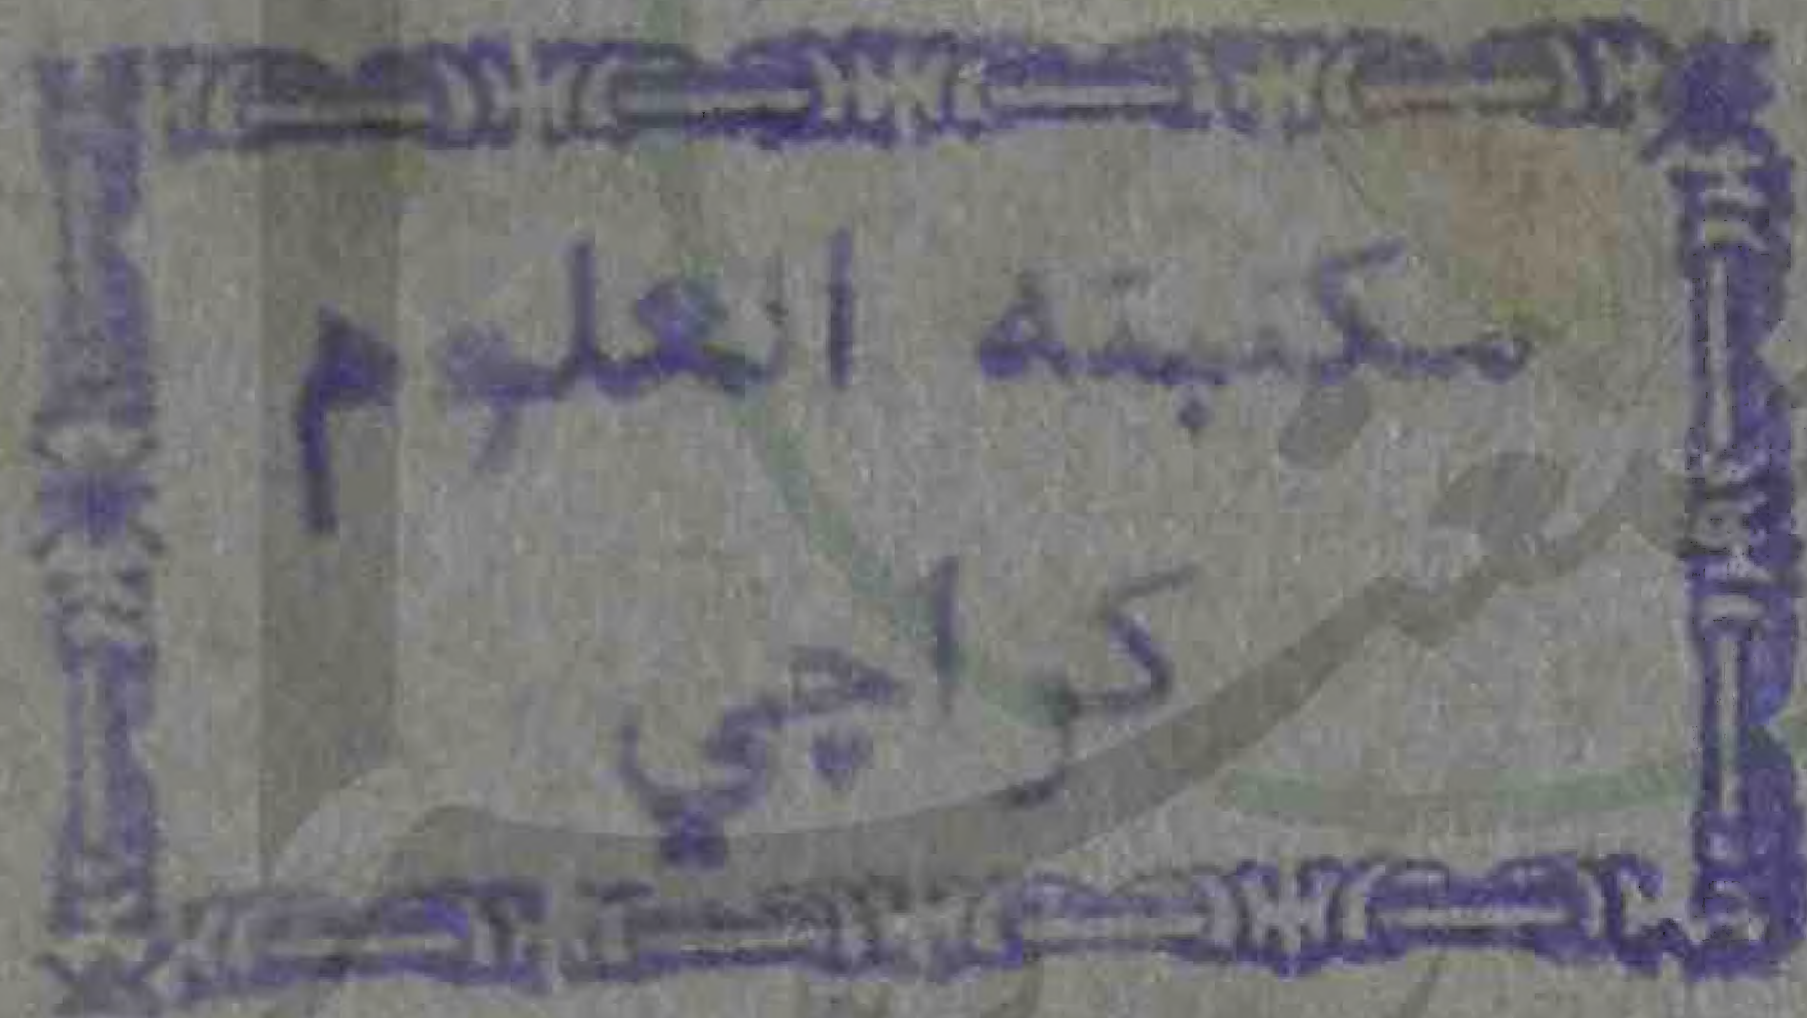 مكتبة العلوم
كراچي